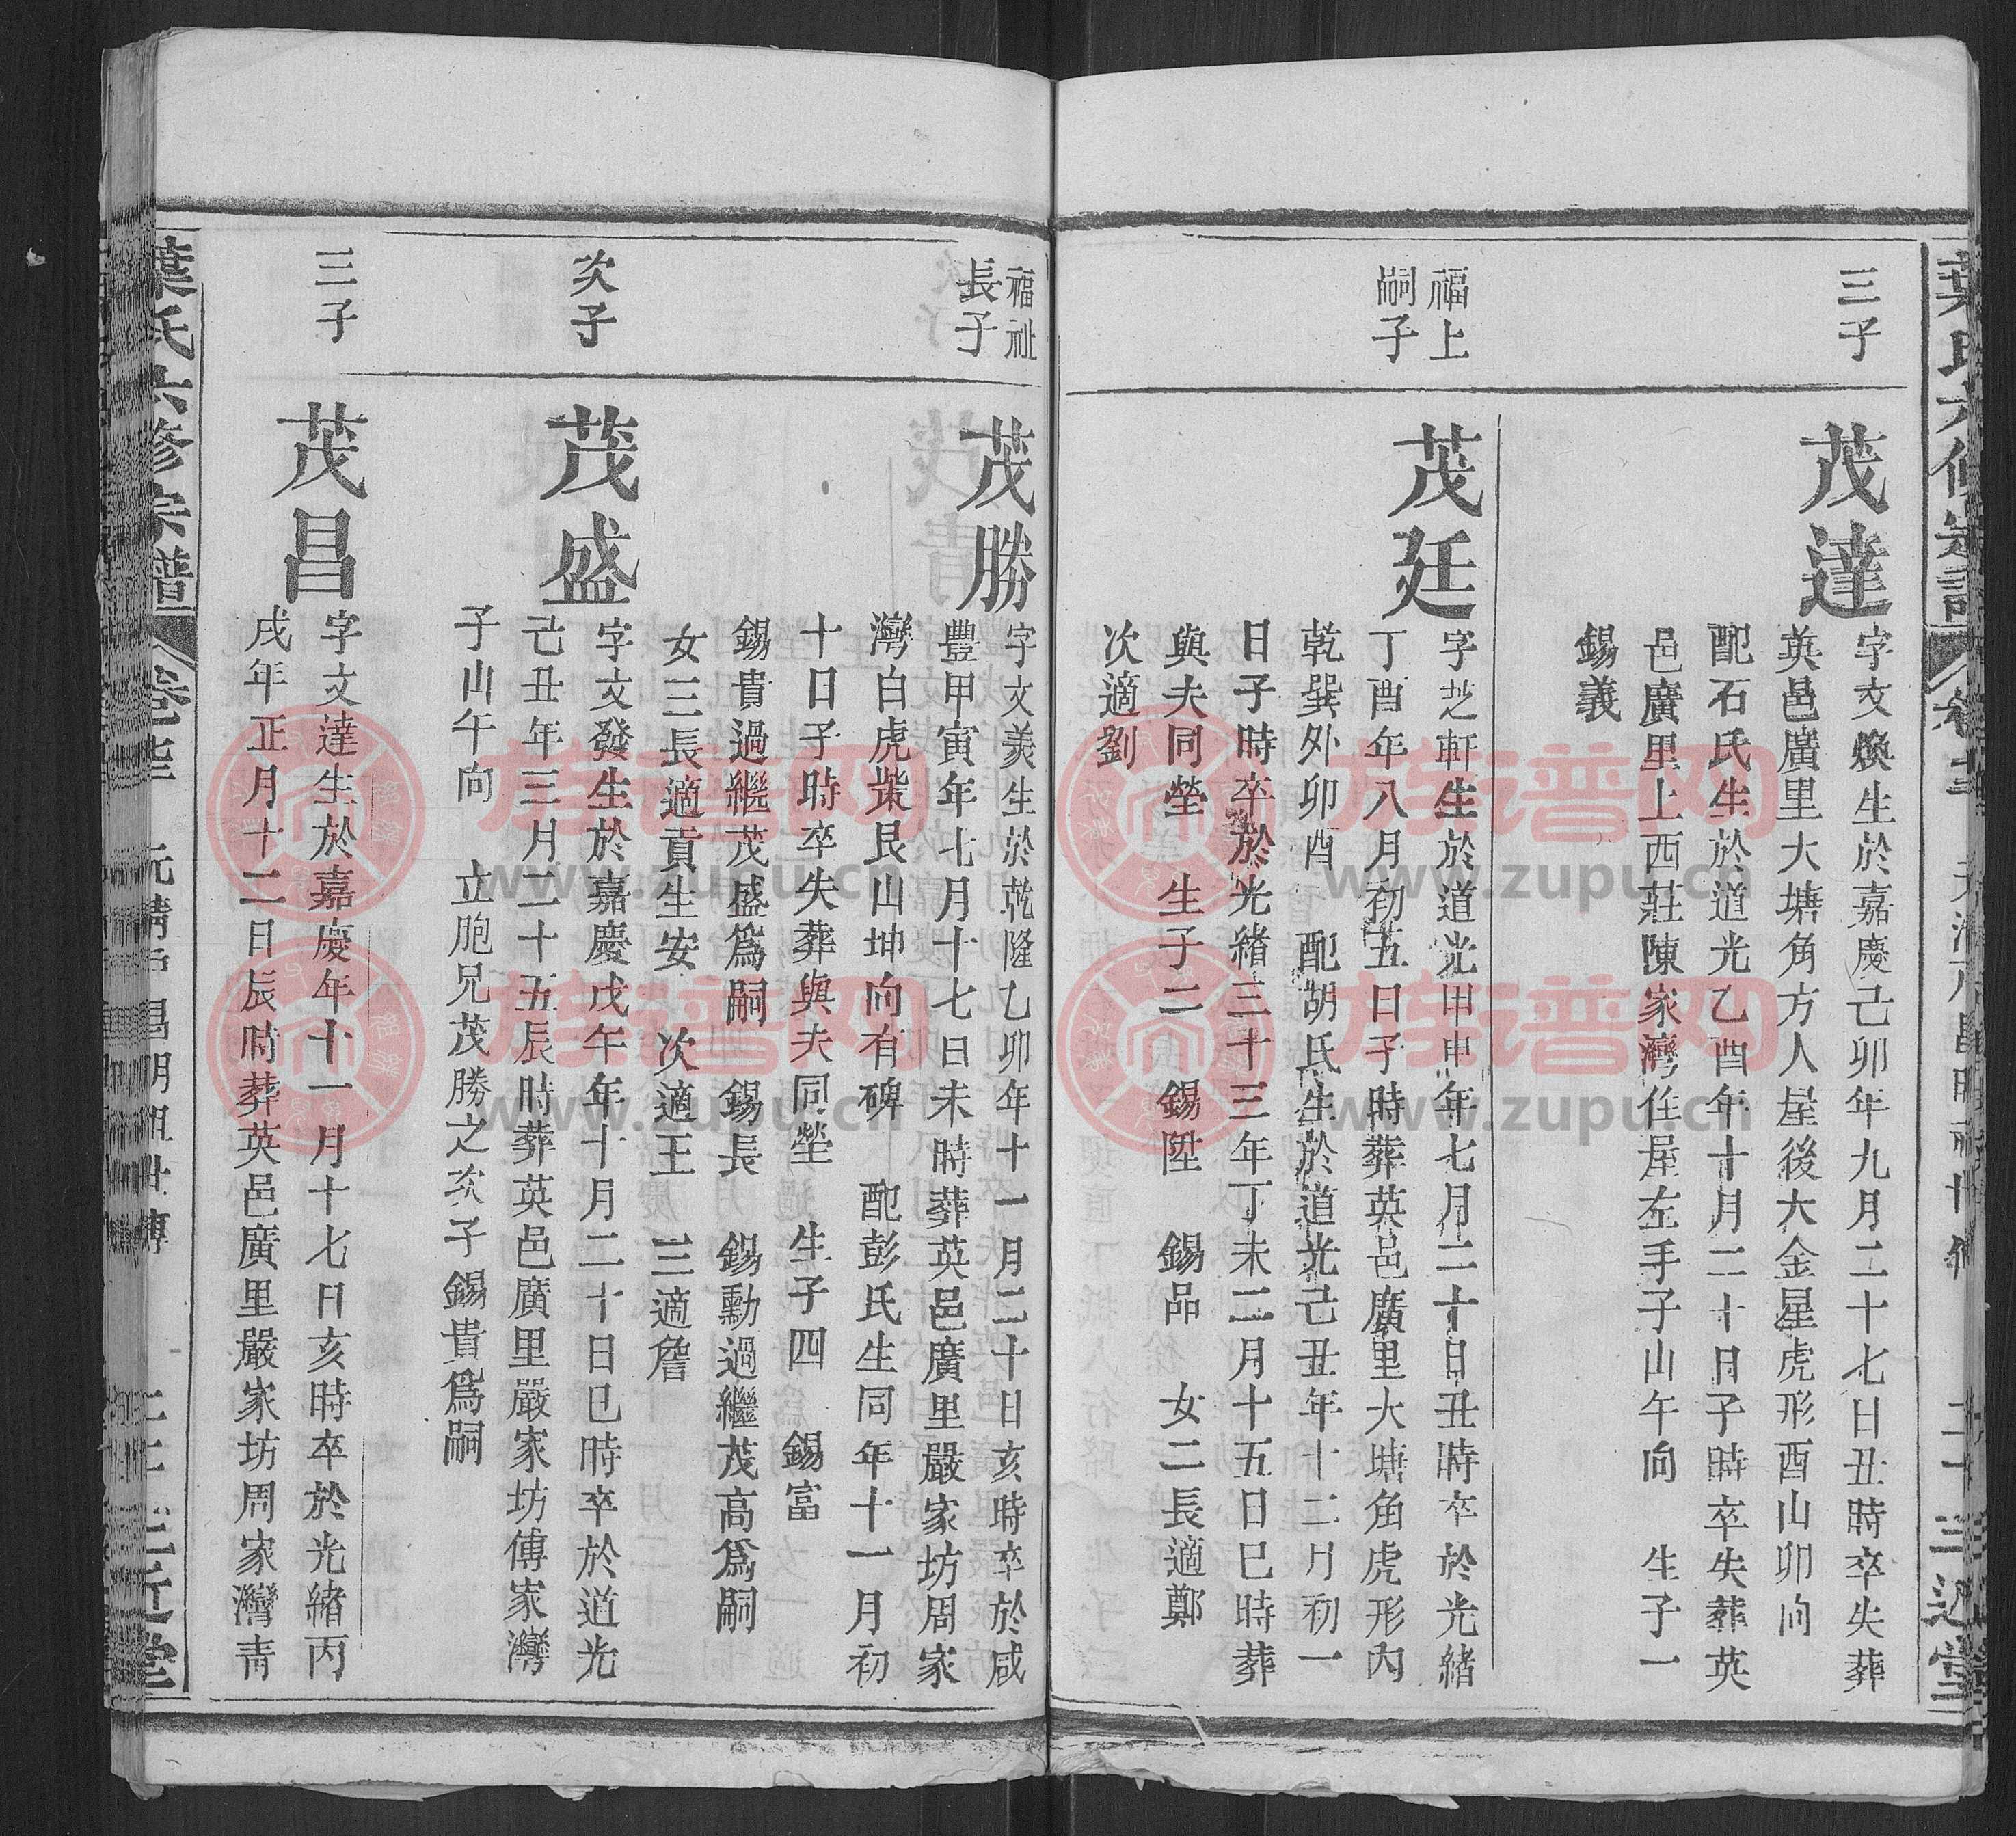 三子
茂達
字文煥生於嘉慶己卯年九月二十七日丑時卒失葬
英邑廣里大塘角方人屋後大金星虎形酉山卯向
配石氏生於道光乙酉年十月二十日子時卒失葬英
邑廣里上西莊陳家灣住屋左手子山午向 生子一
錫義
福上
嗣子
茂廷
字芝軒生於道光甲申年七月二十日丑時卒於光緒
丁酉年八月初五日子時葬英邑廣里大塘角虎形內
乾巽外卯酉 配胡氏生於道光己丑年十二月初一
日子時卒於光緒三十三年丁未二月十五日巳時葬
與夫同塋 生子二 錫陞 錫品 女二長適鄭
次適劉
福祉
長子
茂勝
字文義生於乾隆乙卯年十一月二十日亥時卒於咸
豐甲寅年七月十七日未時葬英邑廣里嚴家坊周家
灣白虎嘴艮山坤向有碑 配彭氏生同年十一月初
十日子時卒失葬與夫同塋 生子四 錫富
錫貴過繼茂盛爲嗣 錫長 錫勳過繼茂高爲嗣
女三長適貢生安 次適王 三適詹
次子
茂盛
字文發生於嘉慶戊午年十月二十日巳時卒於道光
己丑年三月二十五辰時葬英邑廣里嚴家坊傅家灣
子山午向 立胞兄茂勝之次子錫貴爲嗣
三子
茂昌
字文達生於嘉慶年十一月十七日亥時卒於光緒丙
戌年正月十二日辰時葬英邑廣里嚴家坊周家灣青
葉氏六修宗譜
三近堂
族谱网
www.zupu.cn
族谱网
www.zupu.cn
族谱网
www.zupu.cn
族谱网
www.zupu.cn